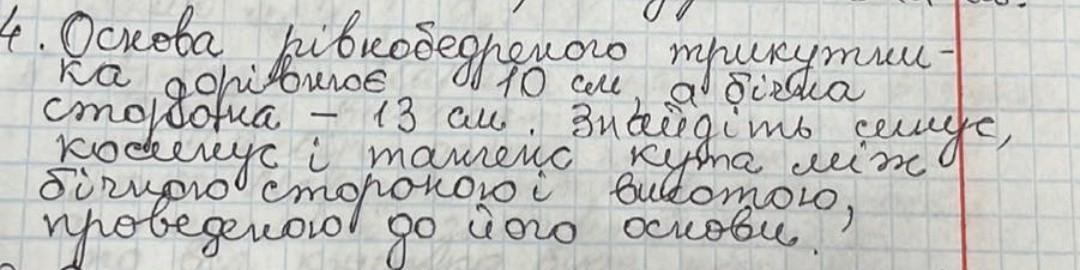 4. Основа рівнобедреного трикутни-
ка дорівнює 10 см, а бічна
сторона - 13 см. Знайдіть синус,
косинус і тангенс кута між
бічною стороною і висотою,
проведеною до його основи.